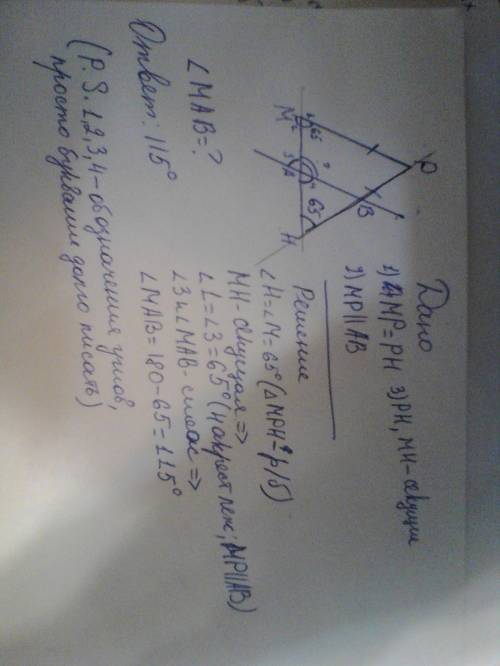 Дано
1) MP=PH 3) PH, MH-секущие
2) MP||AB
P
M
B
A
H
65
65
?
Решение
∠H=∠M=65° (△MPH-р/б)
MH-секущая =>
∠1=∠3=65° (накрест леж; MP||AB)
∠3 и ∠MAB-смеж =>
∠MAB=180-65=115°
∠MAB=?
Ответ: 115°
(P.S. 1,2,3,4-обозначения углов,
просто буквами долго писать)